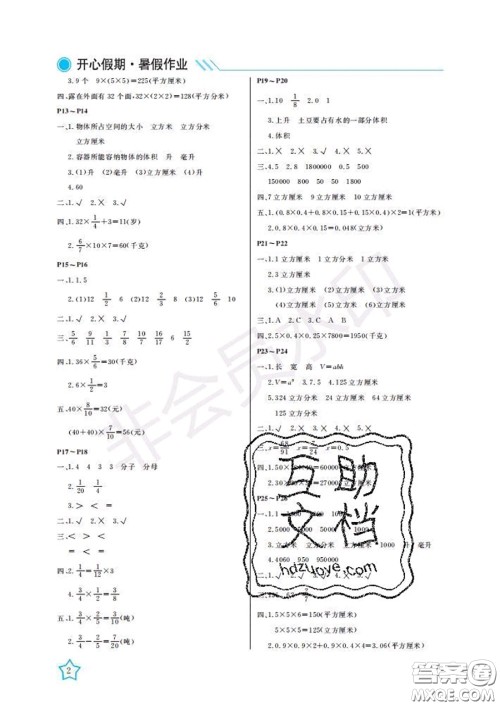 开心假期·暑假作业
3.9个 9×(5×5)=225(平方厘米)
四、露在外面有32个面,32×(2×2)=128(平方分米)
P13~P14
一、1.物体所占空间的大小 立方米 立方分米
立方厘米
2.容器所能容纳物体的体积 升 毫升
3.(1)升 (2)毫升 (3)升 (4)升
4.60
二、1.√ 2.× 3.√
四、1.32×1/4+3=11(岁)
2.6/7×10×7=60(千克)
P15~P16
一、1.1.5
2.(1)12 1/2 6 (2)12 2/3 8 (3)12 5/6 10
二、1.√ 2.× 3.√ 4.×
三、5/6 9/11 1/3 2/5 6/7 3/4 3/10 4/15
四、1.36×5/6=30(千克)
2.6×1/2=3
五、40×8/10=32(元)
(40+40)×7/10=56(元)
P17~P18
一、1.4 4 3 3 分子 分母
2.1/20 1/4
3.> < =
二、1.× 2.× 3.√
三、< > <
= < =
四、2.1/4=1/12×3
3.3/4×1/5=3/20
五、1.3/4×1/5=3/20(吨)
2.3/4-2/5=7/20(吨)
2
P19~P20
一、1.10 1/8 2.0 1
3.上升 土豆要占有水的一部分体积
4.体积
二、1.× 2.× 3.√ 4.×
三、4.5 2.8 1800000 0.5 150
150000 800 50 50 5.8
四、7立方厘米 9立方厘米 10立方厘米
五、1.(0.8×0.4+0.8×0.15+0.15×0.4)×2=1(平方米)
2.0.8×0.4×0.15=0.048(立方米)
P21~P22
一、1.1立方厘米 1立方分米 1立方米
2.3立方厘米
3.(1)立方厘米 (2)立方米 (3)立方米
(4)立方厘米 (5)立方厘米 (6)立方分米
三、1.A 2.C 3.B 4.A
四、2.5×0.4×0.25×7800=1950(千克)
P23~P24
一、1.长 宽 高 V=abh
2.V=a³ 3.7.5 4.125立方厘米
5.324立方分米 24立方厘米 64立方厘米
125立方分米
二、1.× 2.× 3.× 4.√ 5.×
互助
文档
hdzuoye.com
四、1.5×5×6=150(平方厘米)
5×5×5=125(立方厘米)
2.0.9×0.9×4+0.9×0.4=3.06(平方米)
非会员水印
答案圈
MXQE.COM